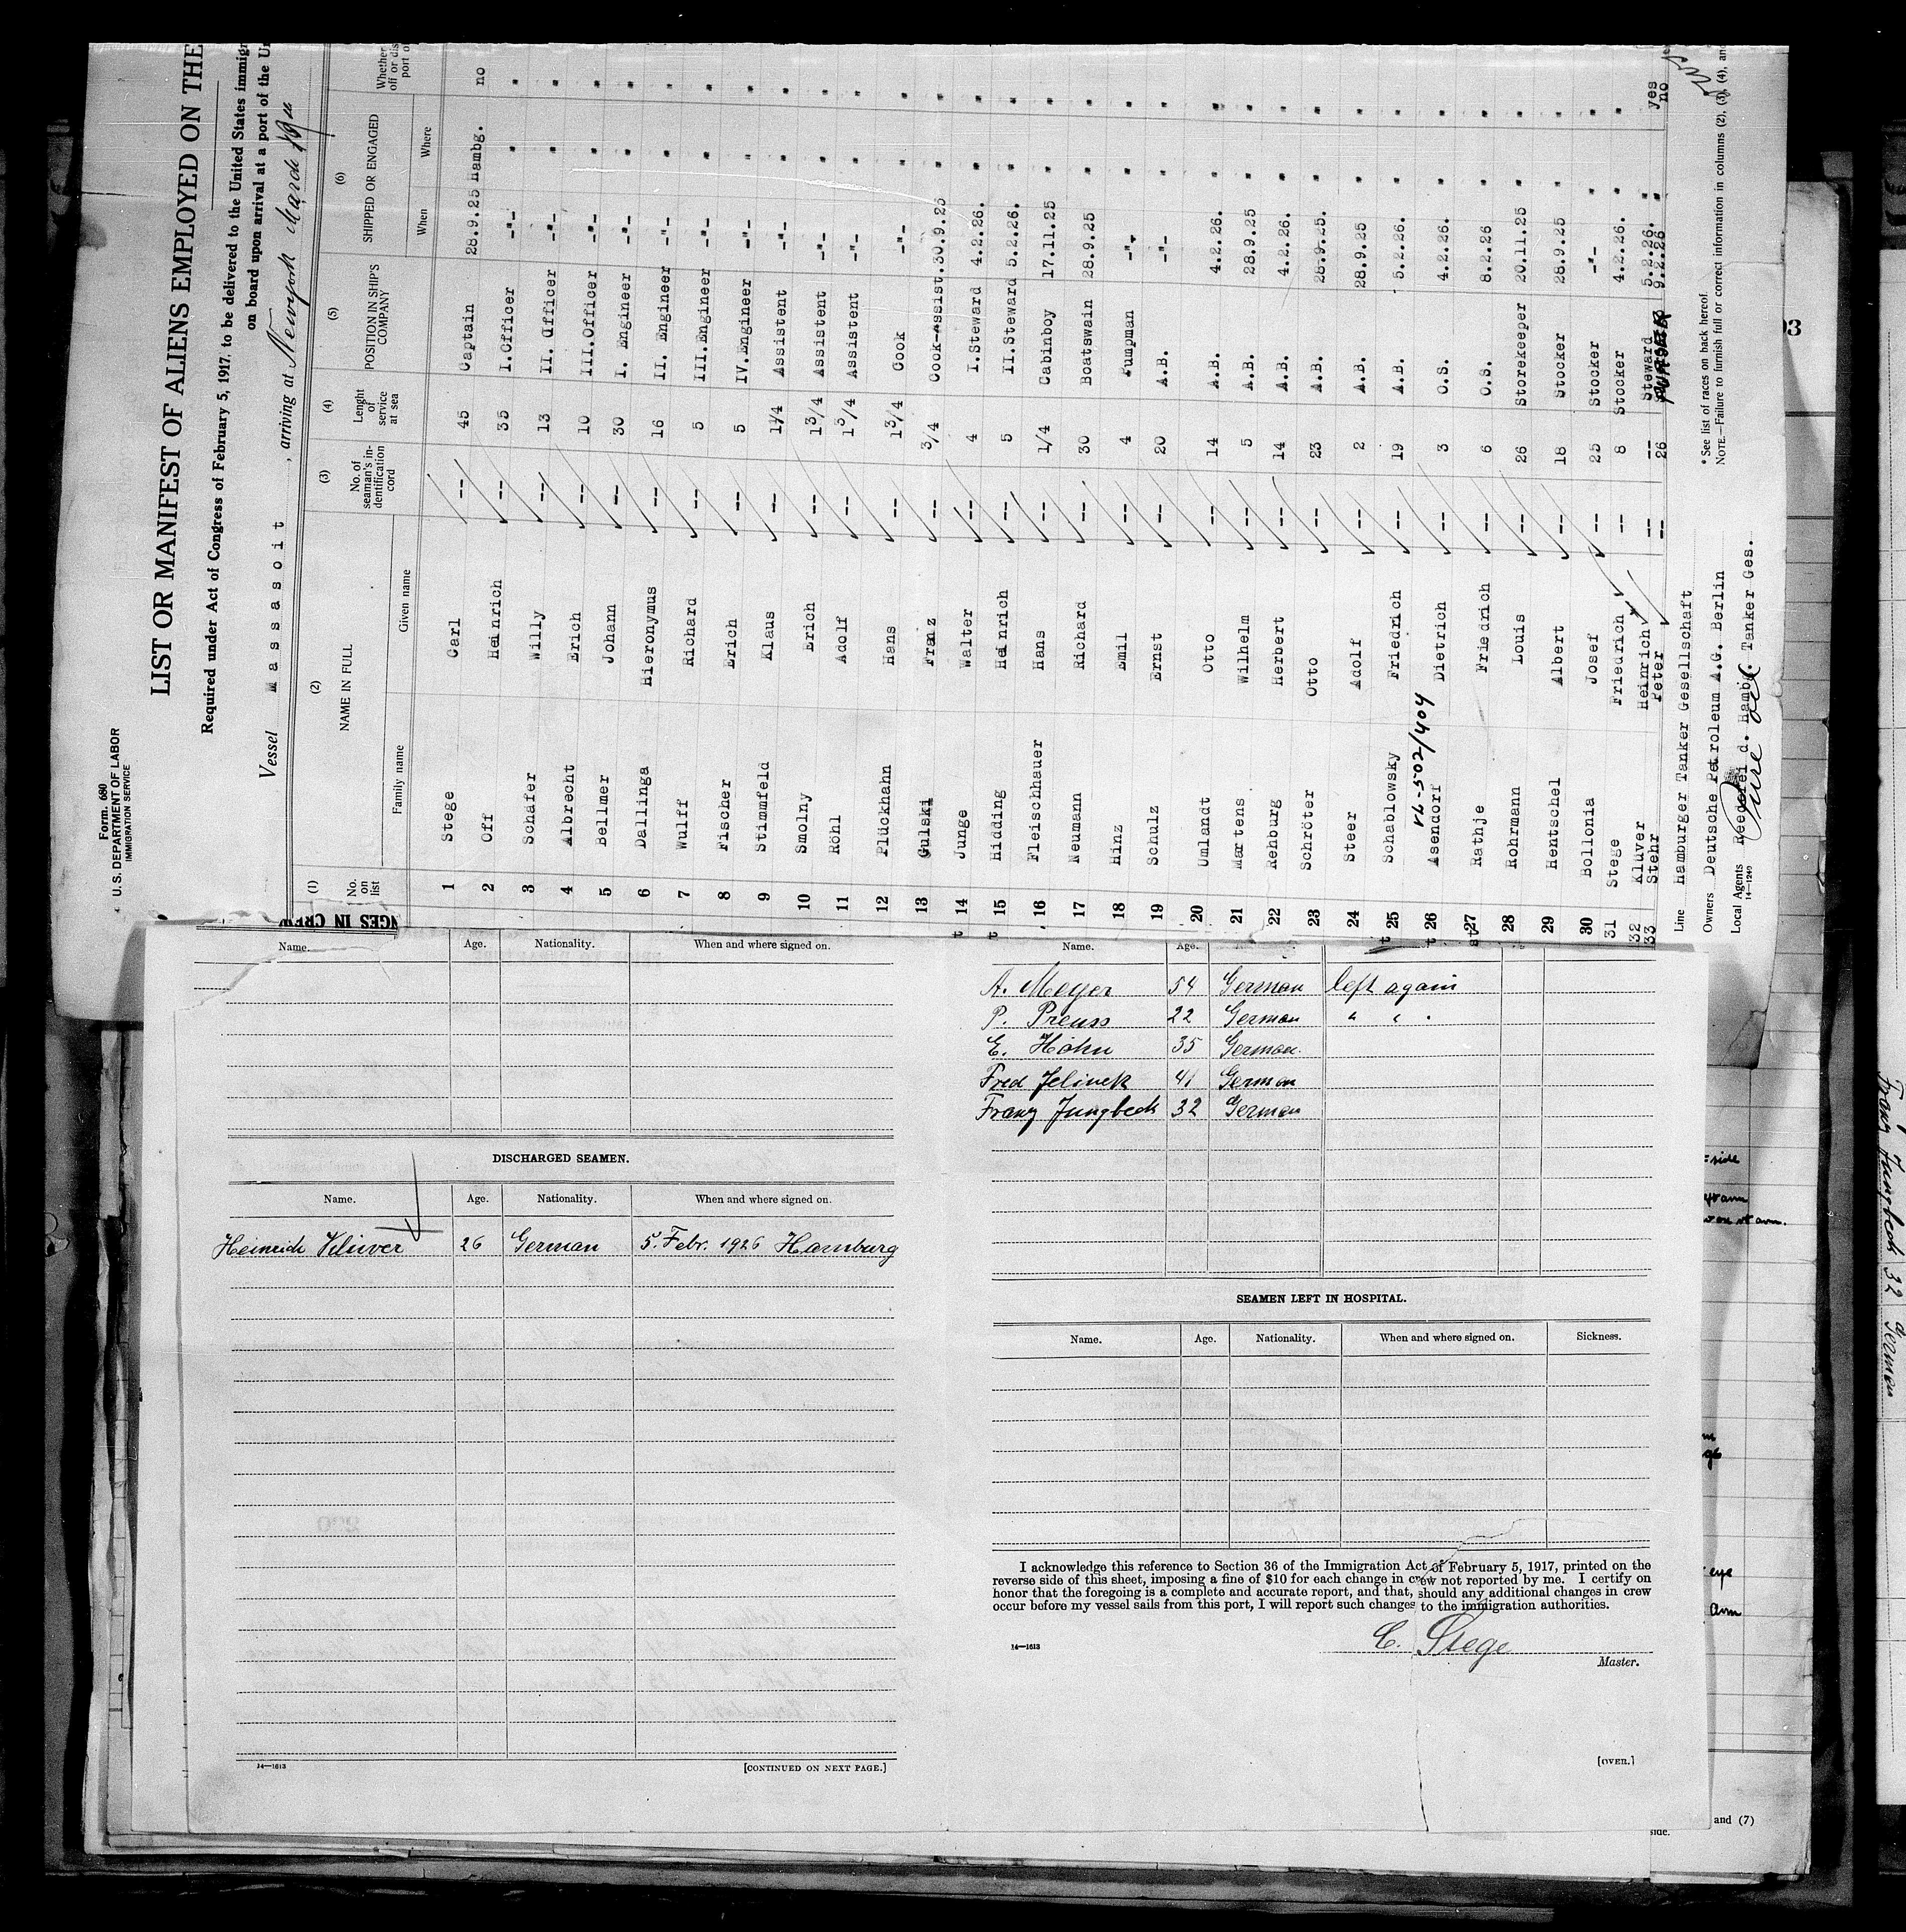 Form. 680
U. S. DEPARTMENT OF LABOR
IMMIGRATION SERVICE
LIST OR MANIFEST OF ALIENS EMPLOYED ON THE
Required under Act of Congress of February 5, 1917, to be delivered to the United States immigr
on board upon arrival at a port of the Un
Vessel Massasoit, arriving at Newyork
(1) (2) (3) (4) (5) (6)
No. on list NAME IN FULL No. of seaman's in-dentification cord Lenght of service at sea POSITION IN SHIP'S COMPANY SHIPPED OR ENGAGED Whether
Family name Given name When Where
1 Stege Carl -- 45 Captain 28.9.25 Hambg. no
2 Off Heinrich -- 35 I.Officer -"- " "
3 Schäfer Willy -- 13 II. Officer -"- " "
4 Albrecht Erich -- 10 III.Officer -"- " "
5 Bellmer Johann -- 30 I. Engineer -"- " "
6 Dallinga Hieronymus -- 16 II. Engineer -"- " "
7 Wulff Richard -- 5 III.Engineer -"- " "
8 Fischer Erich -- 5 IV.Engineer -"- " "
9 Stimmfeld Klaus -- 1 1/4 Assistent -"- " "
10 Smolny Erich -- 1 3/4 Assistent -"- " "
11 Röhl Adolf -- 1 3/4 Assistent -"- " "
12 Plückhahn Hans -- 1 3/4 Cook -"- " "
13 Gulski Franz -- 3/4 Cook-Assist. 30.9.25 " "
14 Junge Walter -- 4 I.Steward 4.2.26. " "
15 Hidding Heinrich -- 5 II.Steward 5.2.26. " "
16 Fleischhauer Hans -- 1/4 Cabinboy 17.11.25 " "
17 Neumann Richard -- 30 Boatswain 28.9.25 " "
18 Hinz Emil -- 4 Pumpman -"- " "
19 Schulz Ernst -- 20 A.B. -"- " "
20 Umlandt Otto -- 14 A.B. 4.2.26. " "
21 Martens Wilhelm -- 5 A.B. 28.9.25 " "
22 Rehburg Herbert -- 14 A.B. 4.2.26. " "
23 Schröter Otto -- 23 A.B. 28.9.25. " "
24 Steer Adolf -- 2 A.B. 28.9.25 " "
25 Schablowsky Friedrich -- 19 A.B. 5.2.26. " "
VL-502/404
26 Asendorf Dietrich -- 3 O.S. 4.2.26. " "
27 Rathje Friedrich -- 6 O.S. 8.2.26 " "
28 Rohrmann Louis -- 26 Storekeeper 20.11.25 " "
29 Hentschel Albert -- 18 Stocker 28.9.25 " "
30 Bollonia Josef -- 25 Stocker -"- " "
31 Stege Friedrich -- 8 Stocker 4.2.26. " "
32 Klüver Heinrich -- -- Steward 5.2.26. " yes
33 Stehr Peter -- 26 PUMPMAN 9.2.26 " no
Line Hamburger Tanker Gesellschaft
Owners Deutsche Petroleum A.G. Berlin
Local Agents Reederei d. Hambg. Tanker Ges.
14—1240
* See list of races on back hereof.
NOTE.—Failure to furnish full or correct information in columns (2), (3), (4), and
NGES IN CREW
Name. Age. Nationality. When and where signed on.
DISCHARGED SEAMEN.
Name. Age. Nationality. When and where signed on.
Heinrich Klüver 26 German 5. Febr. 1926 Hamburg
14—1613 [CONTINUED ON NEXT PAGE.]
Name. Age.
A. Meyer 54 German left again
P. Preuss 22 German " " .
E. Höhn 35 German
Fred Jelinek 41 German
Franz Jungbeck 32 German
SEAMEN LEFT IN HOSPITAL.
Name. Age. Nationality. When and where signed on. Sickness.
I acknowledge this reference to Section 36 of the Immigration Act of February 5, 1917, printed on the
reverse side of this sheet, imposing a fine of $10 for each change in crew not reported by me. I certify on
honor that the foregoing is a complete and accurate report, and that, should any additional changes in crew
occur before my vessel sails from this port, I will report such changes to the immigration authorities.
14—1613
C. Stege
Master.
[OVER.]
93
side
eye
Arm
and (7)
side.
Franz Jungbeck 32 German